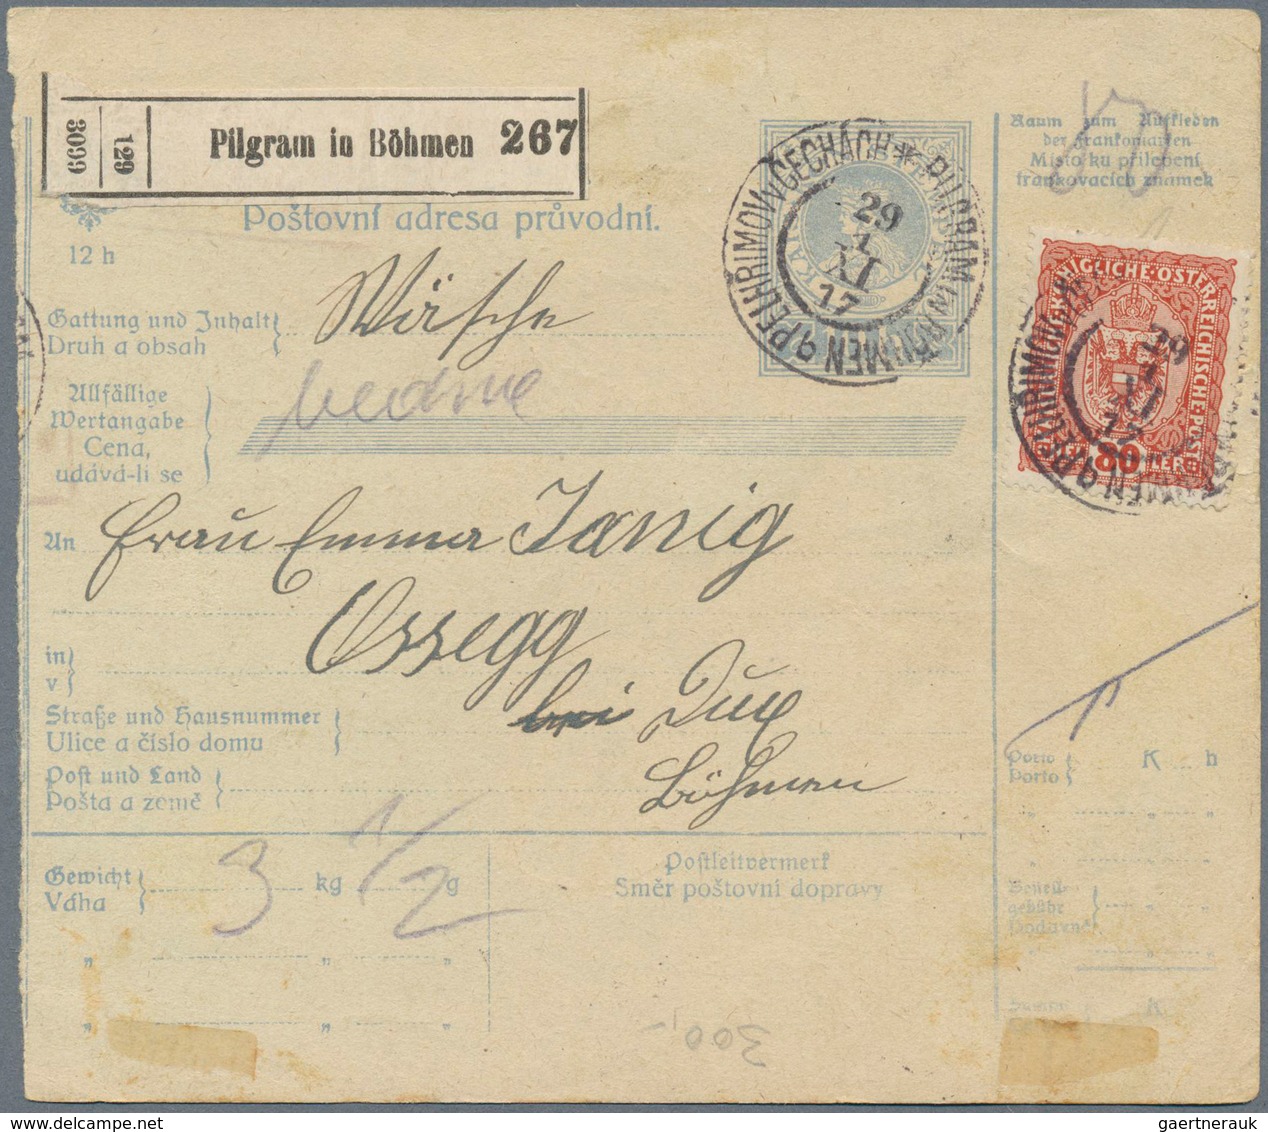 3099
129
Pilgram in Böhmen 267
Poštovní adresa průvodní.
12 h
PELHŘIMOV V ČECHÁCH * PILGRAM IN BÖHMEN
29
XI
17
Raum zum Aufkleben
der Frankomarken
Místo ku přilepení
frankovacích známek
KÖNIGLICHE·ÖSTERREICHISCHE·POST
80
29
17
Gattung und Inhalt
Druh a obsah
Wäsche
Allfällige
Wertangabe
Cena,
udává-li se
An Frau Emma Janig
Ossegg
in
v
bei Dux
Straße und Hausnummer
Ulice a číslo domu
Post und Land
Pošta a země
Böhmen
Porto K h
Porto
Gewicht
Váha
3 kg 1/2 g
Postleitvermerk
Směr poštovní dopravy
Bestell-
gebühr
Dodavné
K
300,-
gaertnerauk